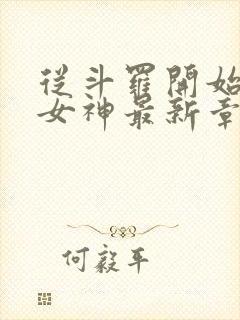 從斗羅開始
女神最新章
何毅平